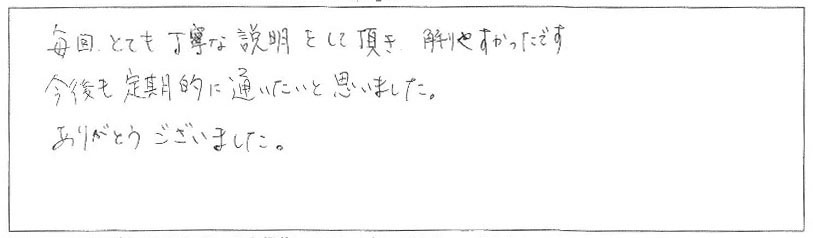 毎回、とても丁寧な説明をして頂き、解りやすかったです
今後も定期的に通いたいと思いました。
ありがとうございました。